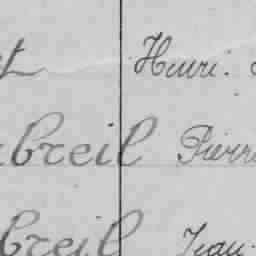 t Henri.
breil Pierre
breil Jean